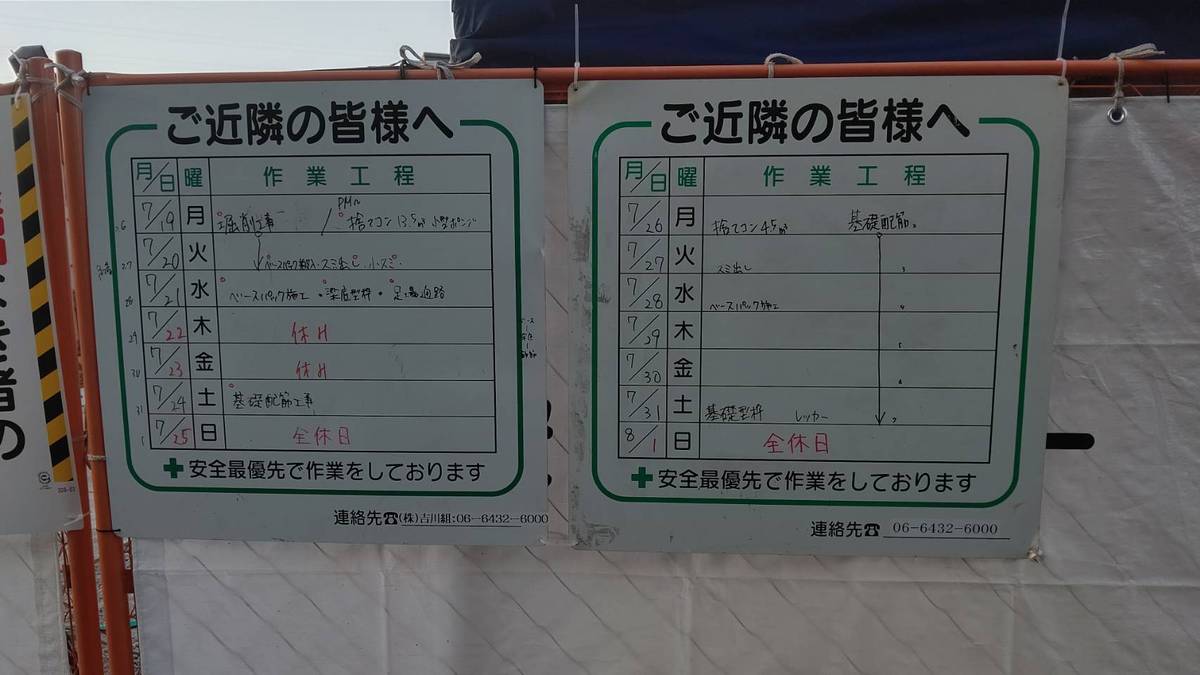 ご近隣の皆様へ
月/日 曜 作業工程
7/19 月 掘削工事 / PM〜 捨てコン 13.5㎥ 小型ポンプ
7/20 火 ベースパック搬入・スミ出し 小スミ
7/21 水 ベースパック施工・梁底型枠・足場通路
7/22 木 休日
7/23 金 休日
7/24 土 基礎配筋工事
7/25 日 全休日
安全最優先で作業をしております
連絡先☎(株)古川組:06-6432-6000
ご近隣の皆様へ
月/日 曜 作業工程
7/26 月 捨てコン4.5㎥ 基礎配筋。
7/27 火 スミ出し 〃
7/28 水 ベースパック施工 〃
7/29 木 〃
7/30 金 〃
7/31 土 基礎型枠 レッカー 〃
8/1 日 全休日
安全最優先で作業をしております
連絡先☎ 06-6432-6000
者の